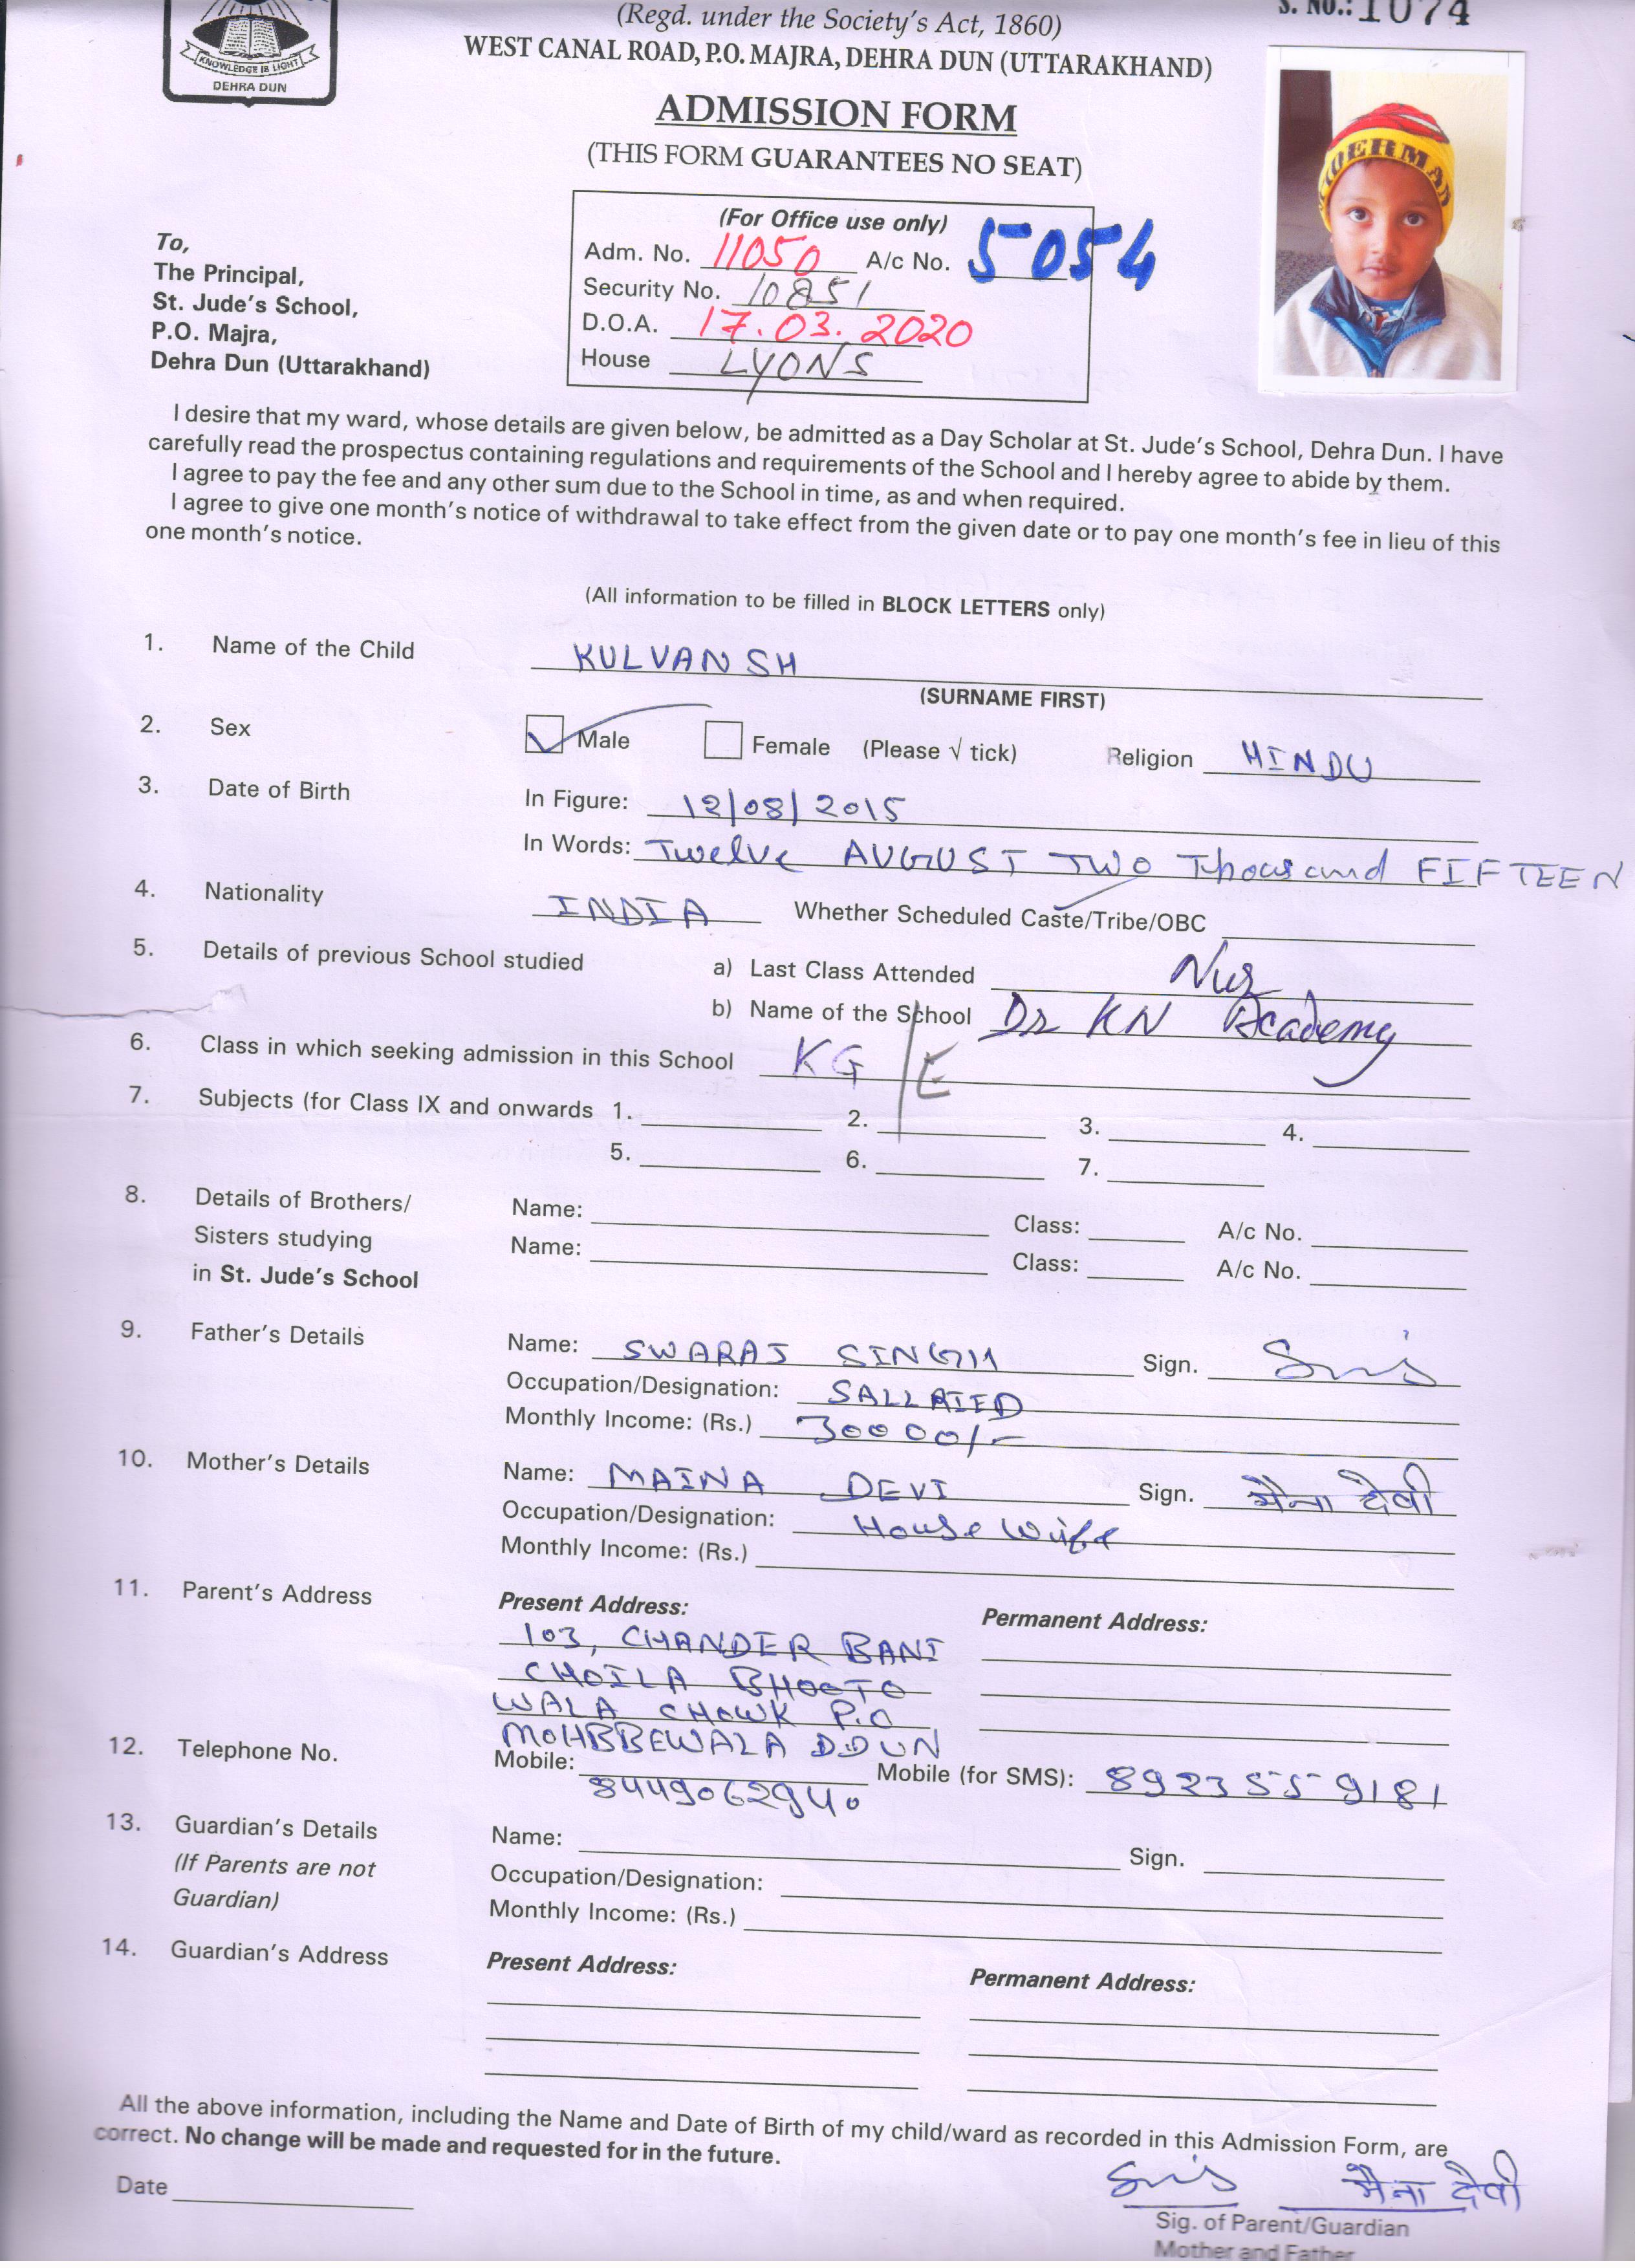 (Regd. under the Society's Act, 1860)
S. No.: 1074
WEST CANAL ROAD, P.O. MAJRA, DEHRA DUN (UTTARAKHAND)
KNOWLEDGE IS LIGHT
DEHRA DUN
ADMISSION FORM
(THIS FORM GUARANTEES NO SEAT)
(For Office use only)
Adm. No. 11050 A/c No. 5054
Security No. 10851
D.O.A. 17.03.2020
House LYONS
To,
The Principal,
St. Jude's School,
P.O. Majra,
Dehra Dun (Uttarakhand)
I desire that my ward, whose details are given below, be admitted as a Day Scholar at St. Jude's School, Dehra Dun. I have
carefully read the prospectus containing regulations and requirements of the School and I hereby agree to abide by them.
I agree to pay the fee and any other sum due to the School in time, as and when required.
I agree to give one month's notice of withdrawal to take effect from the given date or to pay one month's fee in lieu of this
one month's notice.
(All information to be filled in BLOCK LETTERS only)
1. Name of the Child KULVANSH
(SURNAME FIRST)
2. Sex Male Female (Please √ tick) Religion HINDU
3. Date of Birth In Figure: 12/08/2015
In Words: Twelve AUGUST TWO Thousand FIFTEEN
4. Nationality INDIA Whether Scheduled Caste/Tribe/OBC
5. Details of previous School studied a) Last Class Attended Nur
b) Name of the School Dr KN Academy
6. Class in which seeking admission in this School KG/E
7. Subjects (for Class IX and onwards 1. 2. 3. 4.
5. 6. 7.
8. Details of Brothers/ Name: Class: A/c No.
Sisters studying Name: Class: A/c No.
in St. Jude's School
9. Father's Details Name: SWARAJ SINGH Sign.
Occupation/Designation: SALLAIED
Monthly Income: (Rs.) 30000/-
10. Mother's Details Name: MAINA DEVI Sign. मैना देवी
Occupation/Designation: House Wife
Monthly Income: (Rs.)
11. Parent's Address Present Address: Permanent Address:
103, CHANDER BANI
CHOILA BHOOTO
WALA CHOWK P.O
MOHBBEWALA DDUN
12. Telephone No. Mobile: 8449062940 Mobile (for SMS): 8923559181
13. Guardian's Details Name: Sign.
(If Parents are not Occupation/Designation:
Guardian) Monthly Income: (Rs.)
14. Guardian's Address Present Address: Permanent Address:
All the above information, including the Name and Date of Birth of my child/ward as recorded in this Admission Form, are
correct. No change will be made and requested for in the future.
Date मैना देवी
Sig. of Parent/Guardian
Mother and Father